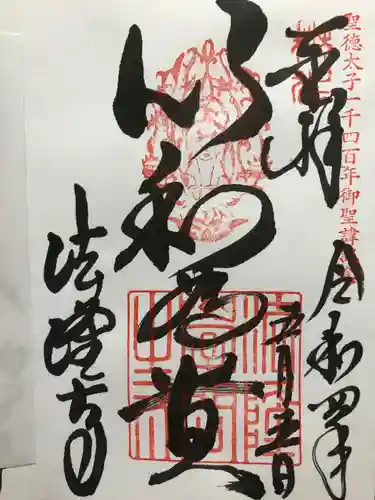 聖徳太子一千四百年御聖諱
奉拝
令和四年
五月五日
以和為貴
法隆寺